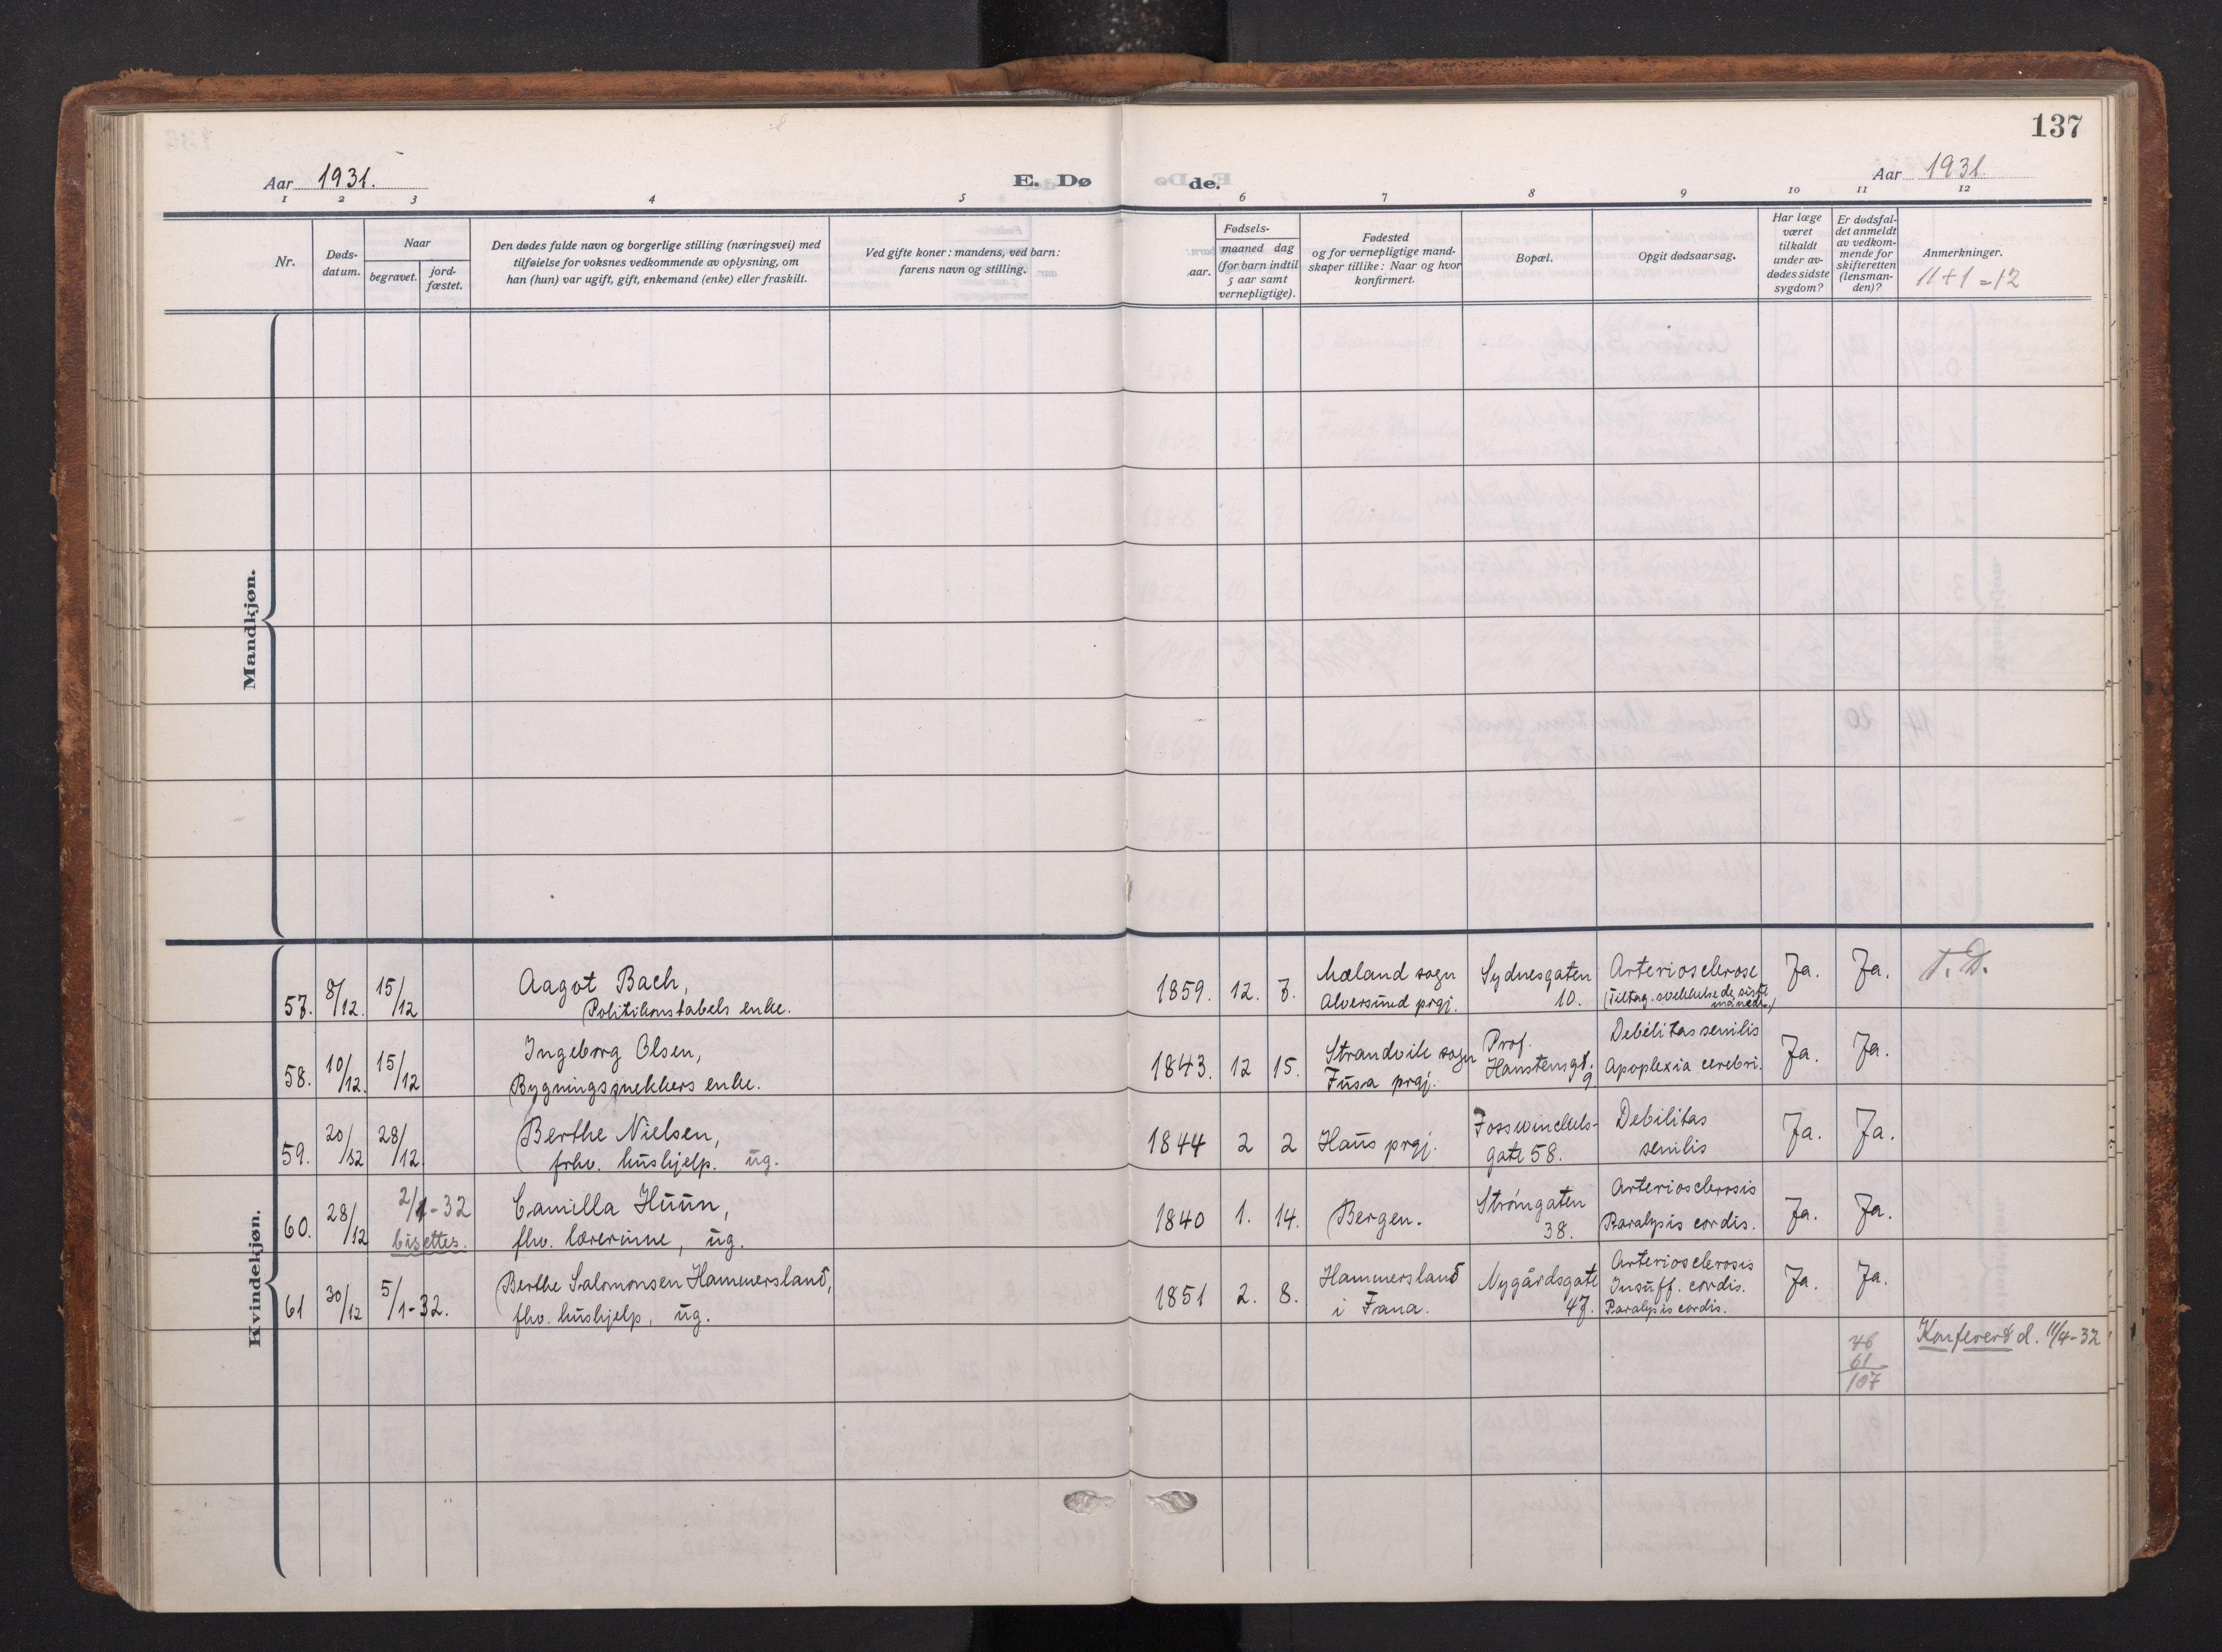 137
Aar 1931.
E. Dø de.
Aar 1931.
1 2 3 4 5 6 7 8 9 10 11 12
Nr.
Døds-
datum.
Naar
begravet.
jord-
fæstet.
Den dødes fulde navn og borgerlige stilling (næringsvei) med
tilføielse for voksnes vedkommende av oplysning, om
han (hun) var ugift, gift, enkemand (enke) eller fraskilt.
Ved gifte koner: mandens, ved barn:
farens navn og stilling.
Fødsels-
aar.
maaned dag
(for barn indtil
5 aar samt
vernepligtige).
Fødested
og for vernepligtige mand-
skaper tillike: Naar og hvor
konfirmert.
Bopæl.
Opgit dødsaarsag.
Har læge
været
tilkaldt
under av-
dødes sidste
sygdom?
Er dødsfal-
det anmeldt
av vedkom-
mende for
skifteretten
(lensman-
den)?
Anmerkninger.
11+1=12
Mandkjøn.
Kvindekjøn.
57. 8/12. 15/12
Aagot Bach,
Politikonstabels enke.
1859. 12. 7.
Mæland sogn
Alversund prgj.
Sydnesgaten
10.
Arteriosclerose
(Tiltag. svekkelse de siste
måneder)
Ja. Ja. T. D.
58. 10/12. 15/12
Ingeborg Olsen,
Bygningssnekkers enke.
1843. 12 15.
Strandvik sogn
Fusa prgj.
Prof.
Hanstensgt.
9
Debilitas senilis
Apoplexia cerebri.
Ja. Ja.
59. 20/12 28/12.
Berthe Nielsen,
frhv. hushjelp. ug.
1844 2 2
Haus prgj.
Fosswinckels-
gate 58.
Debilitas
senilis
Ja. Ja.
60. 28/12 2/1-32
bisettes.
Camilla Huun,
fhv. lærerinne, ug.
1840 1. 14.
Bergen.
Strømgaten
38.
Arteriosclerosis
Paralysis cordis.
Ja. Ja.
61 30/12 5/1-32.
Berthe Salomonsen Hammersland,
fhv. hushjelp, ug.
1851 2. 8.
Hammersland
i Fana.
Nygårdsgate
47.
Arteriosclerosis
Insuff. cordis.
Paralysis cordis.
Ja. Ja.
46
61
107
Konferert d. 11/4-32